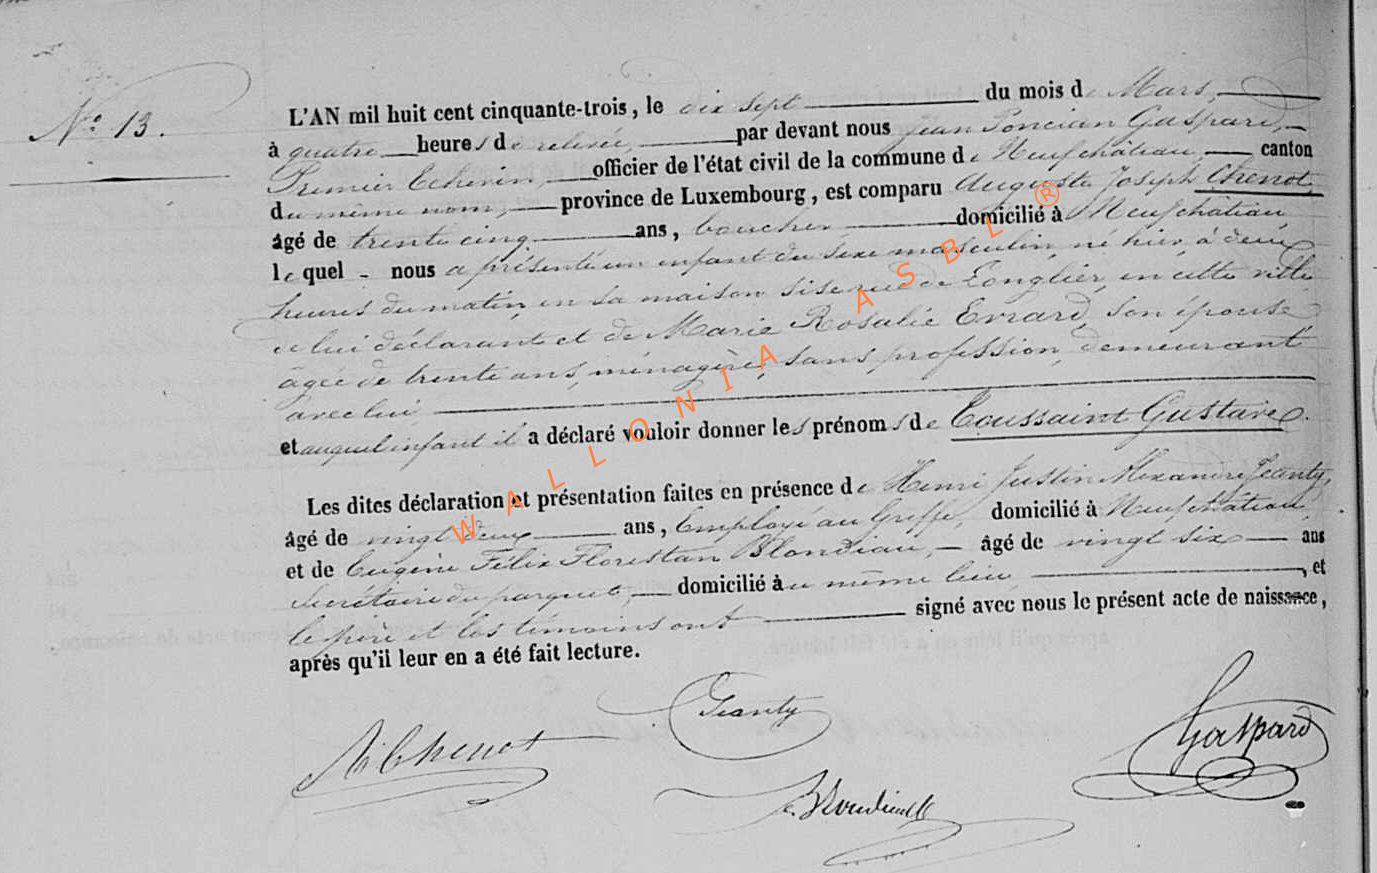 N° 13.
L'AN mil huit cent cinquante-trois, le dix sept du mois de Mars,
à quatre heures de relevée, par devant nous Jean Poncian Gaspard,
Premier Echevin, officier de l'état civil de la commune de Neufchâteau, canton
du même nom, province de Luxembourg, est comparu Auguste Joseph Chenot,
âgé de trente cinq ans, boucher domicilié à Neufchâteau
lequel nous a présenté un enfant du sexe masculin, né hier à deux
heures du matin, en sa maison sise rue de Longlier, en cette ville
de lui déclarant et de Marie Rosalie Evrard, son épouse
âgée de trente ans, ménagère, sans profession, demeurant
avec lui
et auquel enfant il a déclaré vouloir donner les prénoms de Toussaint Gustave.
Les dites déclaration et présentation faites en présence de Henri Justin Alexandre Jeanty,
âgé de vingt deux ans, Employé au Greffe, domicilié à Neufchâteau,
et de Eugène Félix Florestan Blondiau, âgé de vingt six ans
Secrétaire du parquet, domicilié au même lieu, , et
le père et les témoins ont signé avec nous le présent acte de naissance,
après qu'il leur en a été fait lecture.
Jeanty
Chenot
Gaspard
WALLONIA ASBL ®